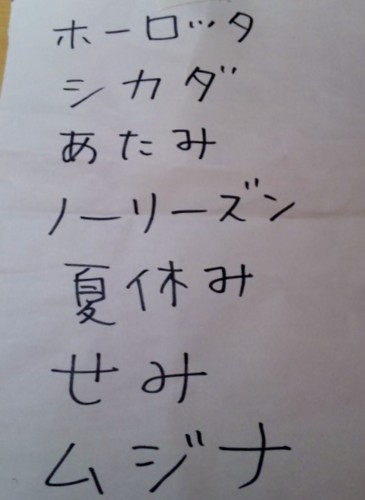 ホーロッタ
シカダ
あたみ
ノーリーズン
夏休み
せみ
ムジナ